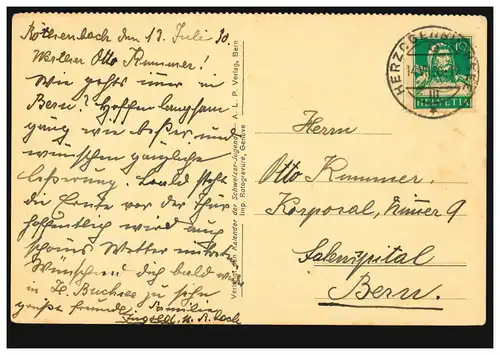 Röthenbach den 13. Juli 30
Werther Otto Rummer!
Wie gehts immer in
Bern? Hoffen langsam
gäng wie besser und
wünschen gänzliche
besserung. Bald steht
die Ernte vor der Thür
hoffentlich wird auch
schöns Wetter
Wünschen Dich bald
in Hz. Buchsee zu sehn
grüße freundl. Familie
Ingold, u. R. bach
Verlag den Kalender der Schweizer-Jugend — A. L. P. Verlag, Bern
Imp. Rotogravure, Genève
HERZOGENBUCHSEE
10
HELVETIA
Herrn
Otto Rummer
Korporal, Zimmer 9
Salemspital
Bern.